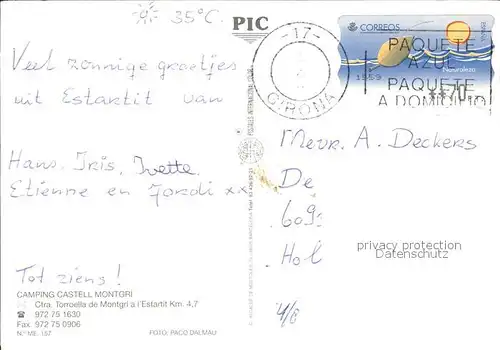 35°C.
Veel zonnige groetjes
uit Estartit van
Hans, Iris, Ivette,
Etienne en Jordi xx
Tot ziens!
CAMPING CASTELL MONTGRI
Ctra. Torroella de Montgri a l'Estartit Km. 4,7
☎ 972 75 1630
Fax 972 75 0906
N.º ME. 157
FOTO: PACO DALMAU
PIC
-17-
GIRONA
CORREOS
ESPAÑA
Naturaleza
**70
PAQUETE
AZUL
PAQUETE
A DOMICILIO
Mevr. A. Deckers
De
609
Hol
privacy protection
Datenschutz